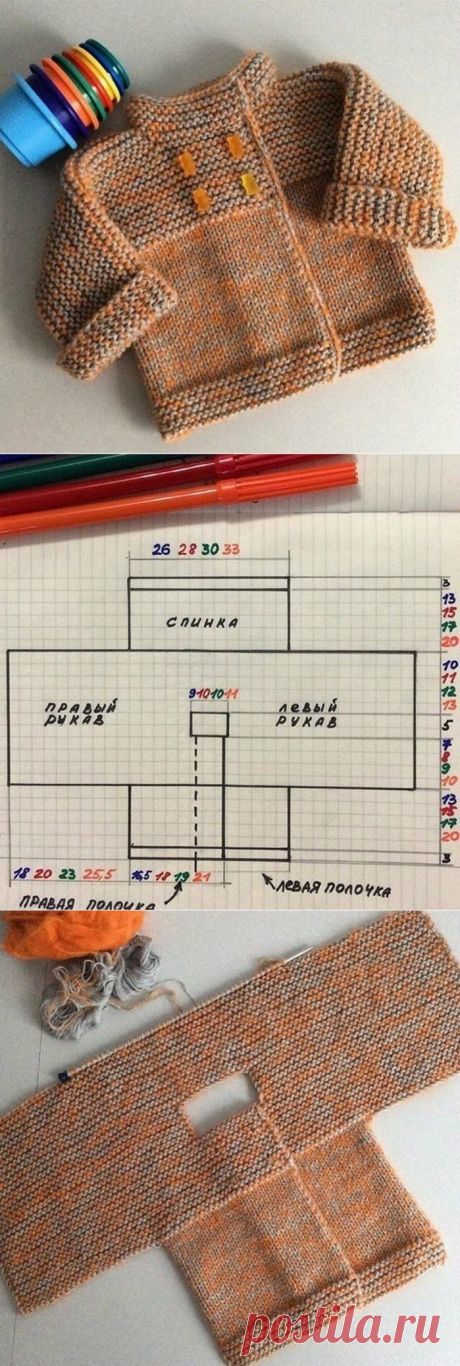 26 28 30 33
3
СПИНКА
13
15
17
20
ПРАВЫЙ
РУКАВ
9 10 10 11
ЛЕВЫЙ
РУКАВ
10
11
12
13
5
7
8
9
10
13
15
17
20
3
18 20 23 25,5
16,5 18 19 21
ПРАВАЯ ПОЛОЧКА
ЛЕВАЯ ПОЛОЧКА
postila.ru